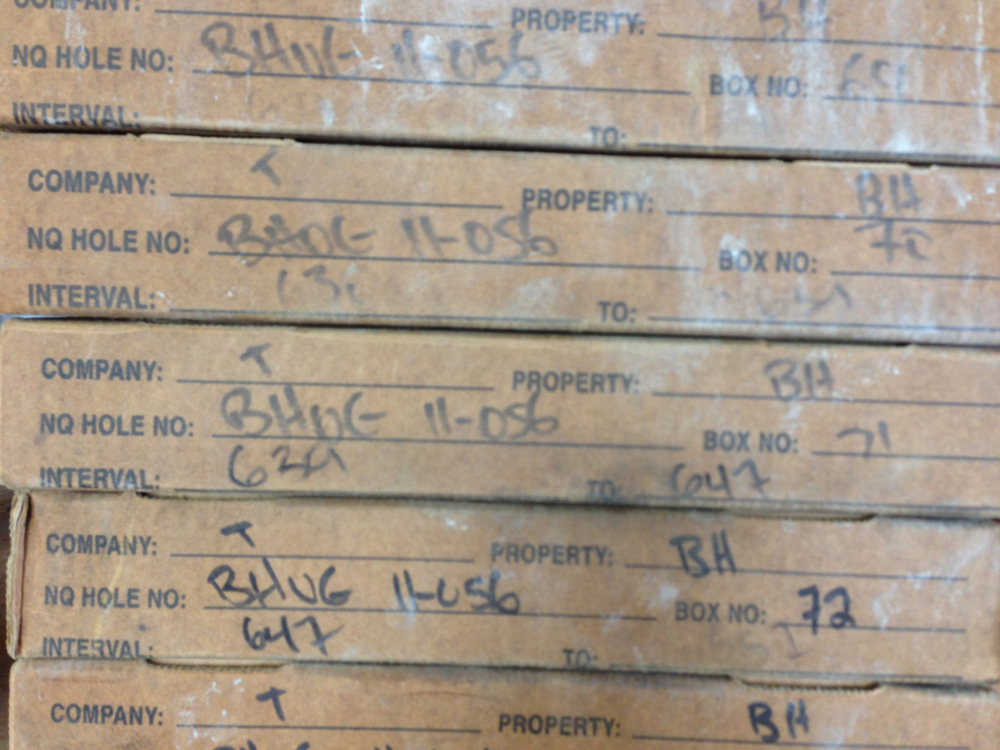 COMPANY: PROPERTY: BH
NQ HOLE NO: BHUG 11-056 BOX NO:
INTERVAL: TO:
COMPANY: T PROPERTY: BH
NQ HOLE NO: BHUG 11-056 BOX NO:
INTERVAL: TO:
COMPANY: T PROPERTY: BH
NQ HOLE NO: BHUG 11-056 BOX NO: 71
INTERVAL: 639 TO: 647
COMPANY: T PROPERTY: BH
NQ HOLE NO: BHUG 11-056 BOX NO: 72
INTERVAL: 647 TO:
COMPANY: T PROPERTY: BH